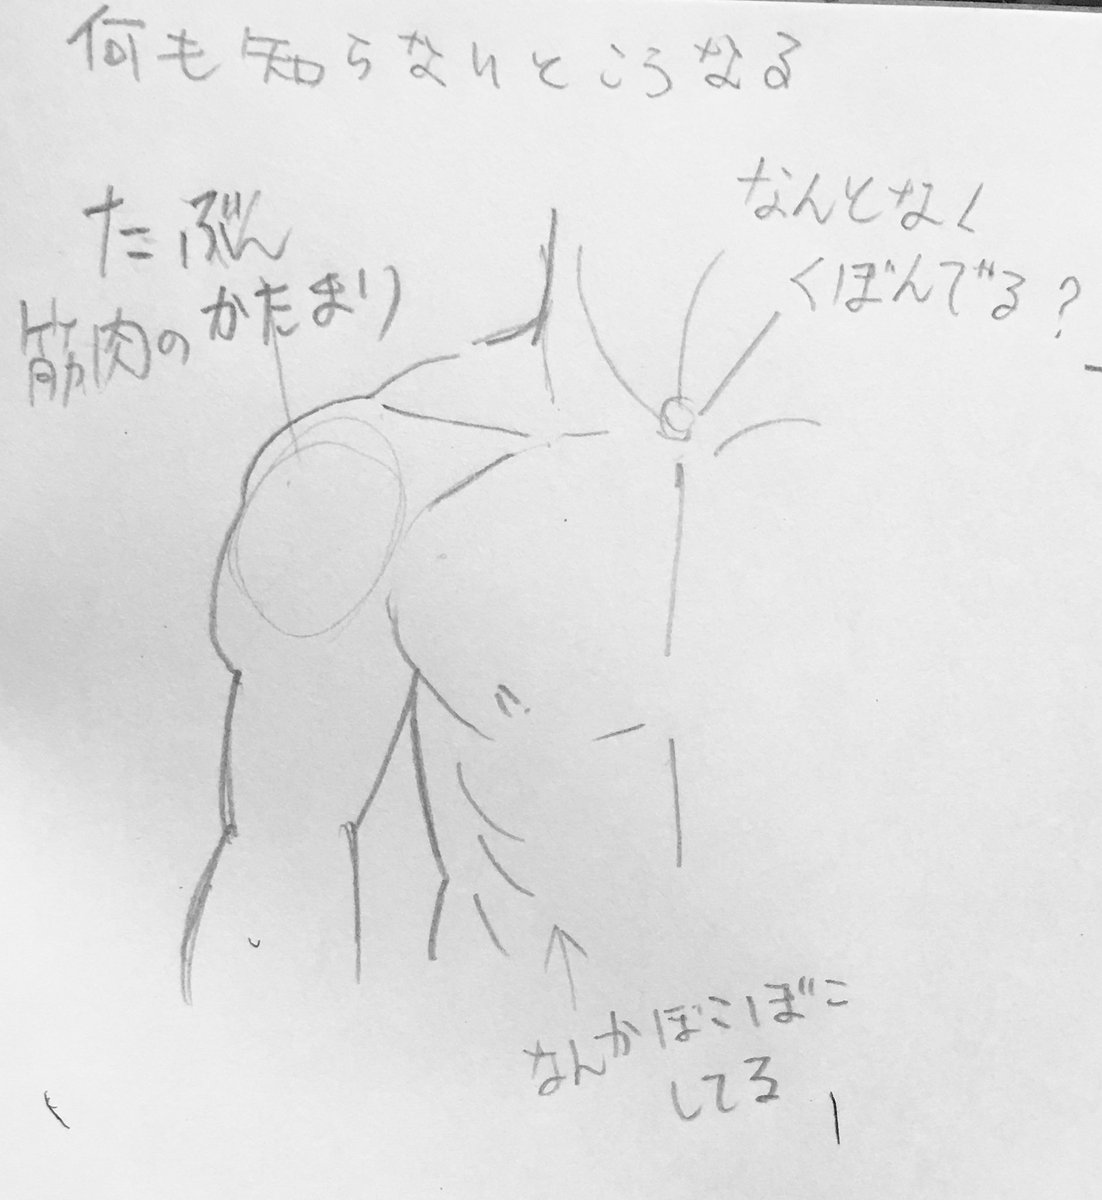 何も知らないところなる
たぶん
筋肉のかたまり
なんとなく
くぼんでる?
なんかぼこぼこ
してる